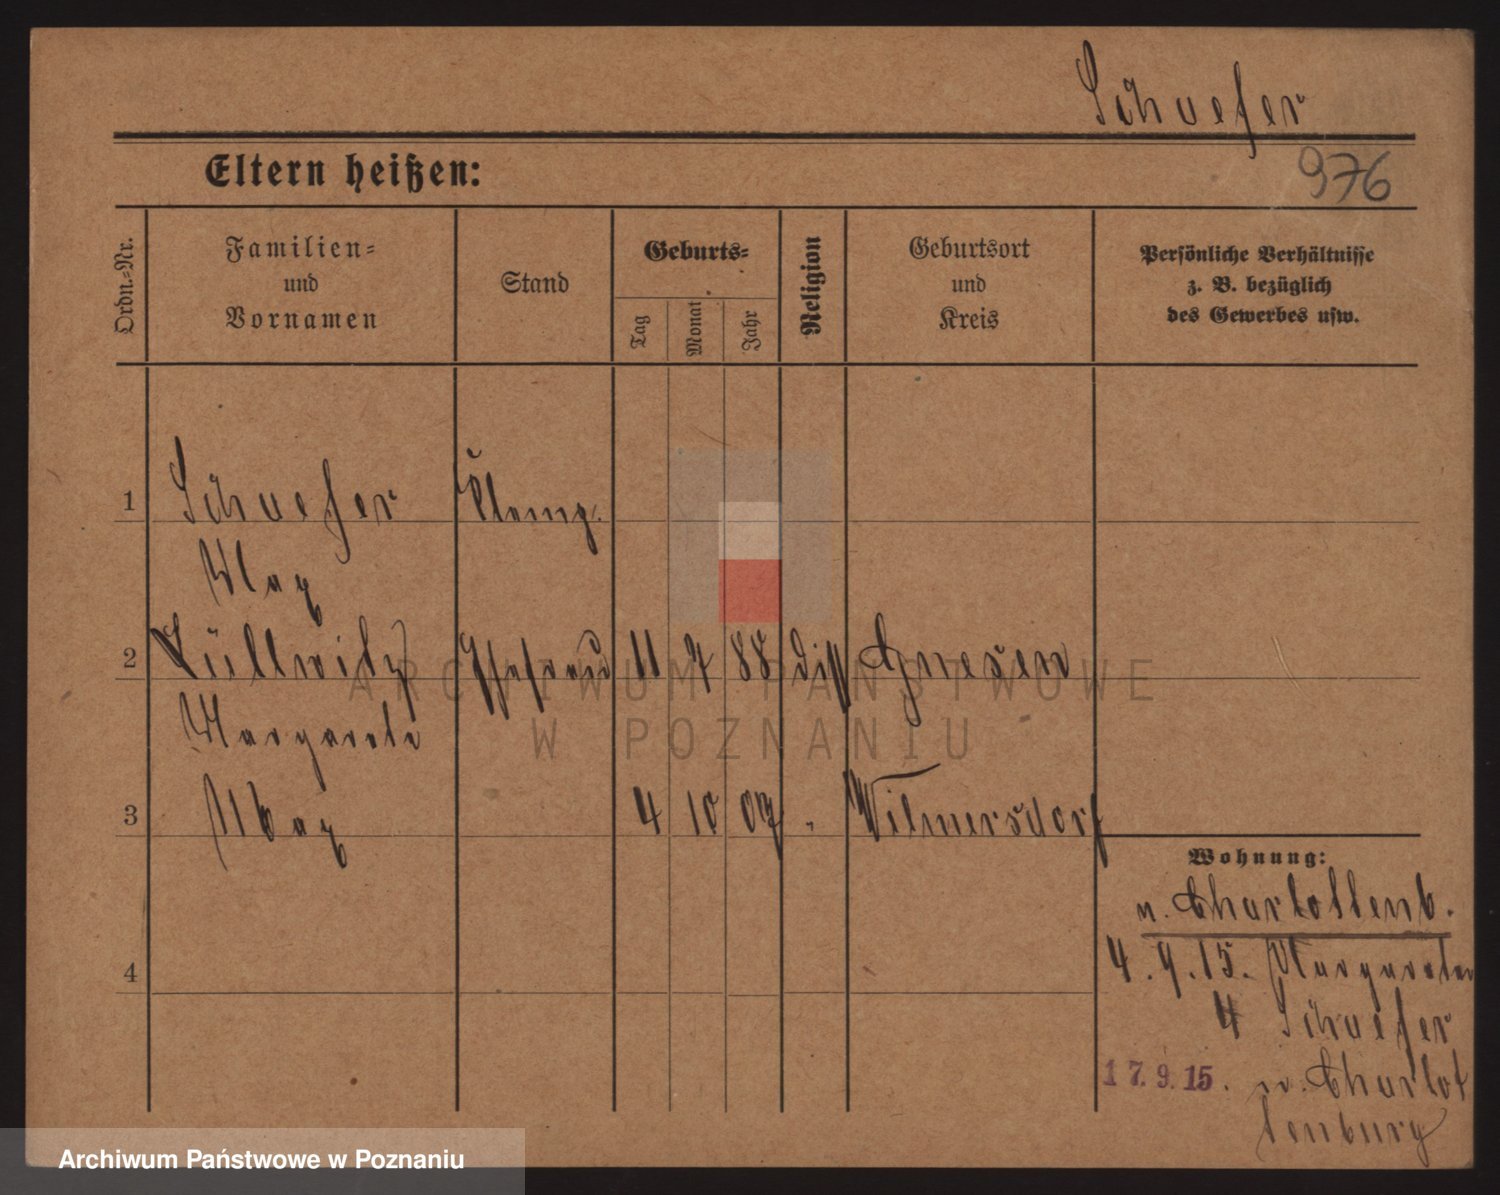 Schaefer
Eltern heißen:
976
Ordn.-Nr.
Familien=
und
Vornamen
Stand
Geburts=
Tag
Monat
Jahr
Religion
Geburtsort
und
Kreis
Persönliche Verhältnisse
z. B. bezüglich
des Gewerbes usw.
1 Schaefer
Max
2 Züllwitz Ehefrau 11 88 diss Gnesen
Margarete
3 Max 4 10 07 " Wilmersdorf
Wohnung:
n. Charlottenb.
4. 9. 15. Margareten
4 Schaefer
4
17.9.15. n. Charlot
tenburg
ARCHIWUM PAŃSTWOWE
W POZNANIU
Archiwum Państwowe w Poznaniu